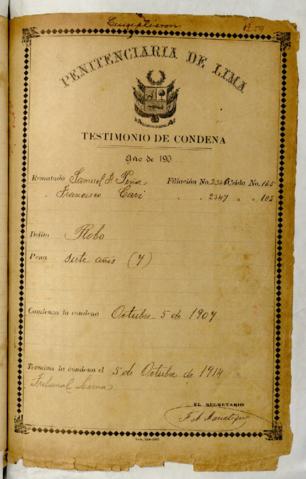 Cumplieron
PENITENCIARIA DE LIMA
TESTIMONIO DE CONDENA
Año de 190
Rematado Samuel J. Peña Filiación No. Celda No. 165
" Francisco Cari " 2347 " " 105
Delito Robo
Pena siete años (7)
Comienza la condena Octubre 5 de 1907
Termina la condena el 5 de Octubre de 1914
Tribunal
EL SECRETARIO